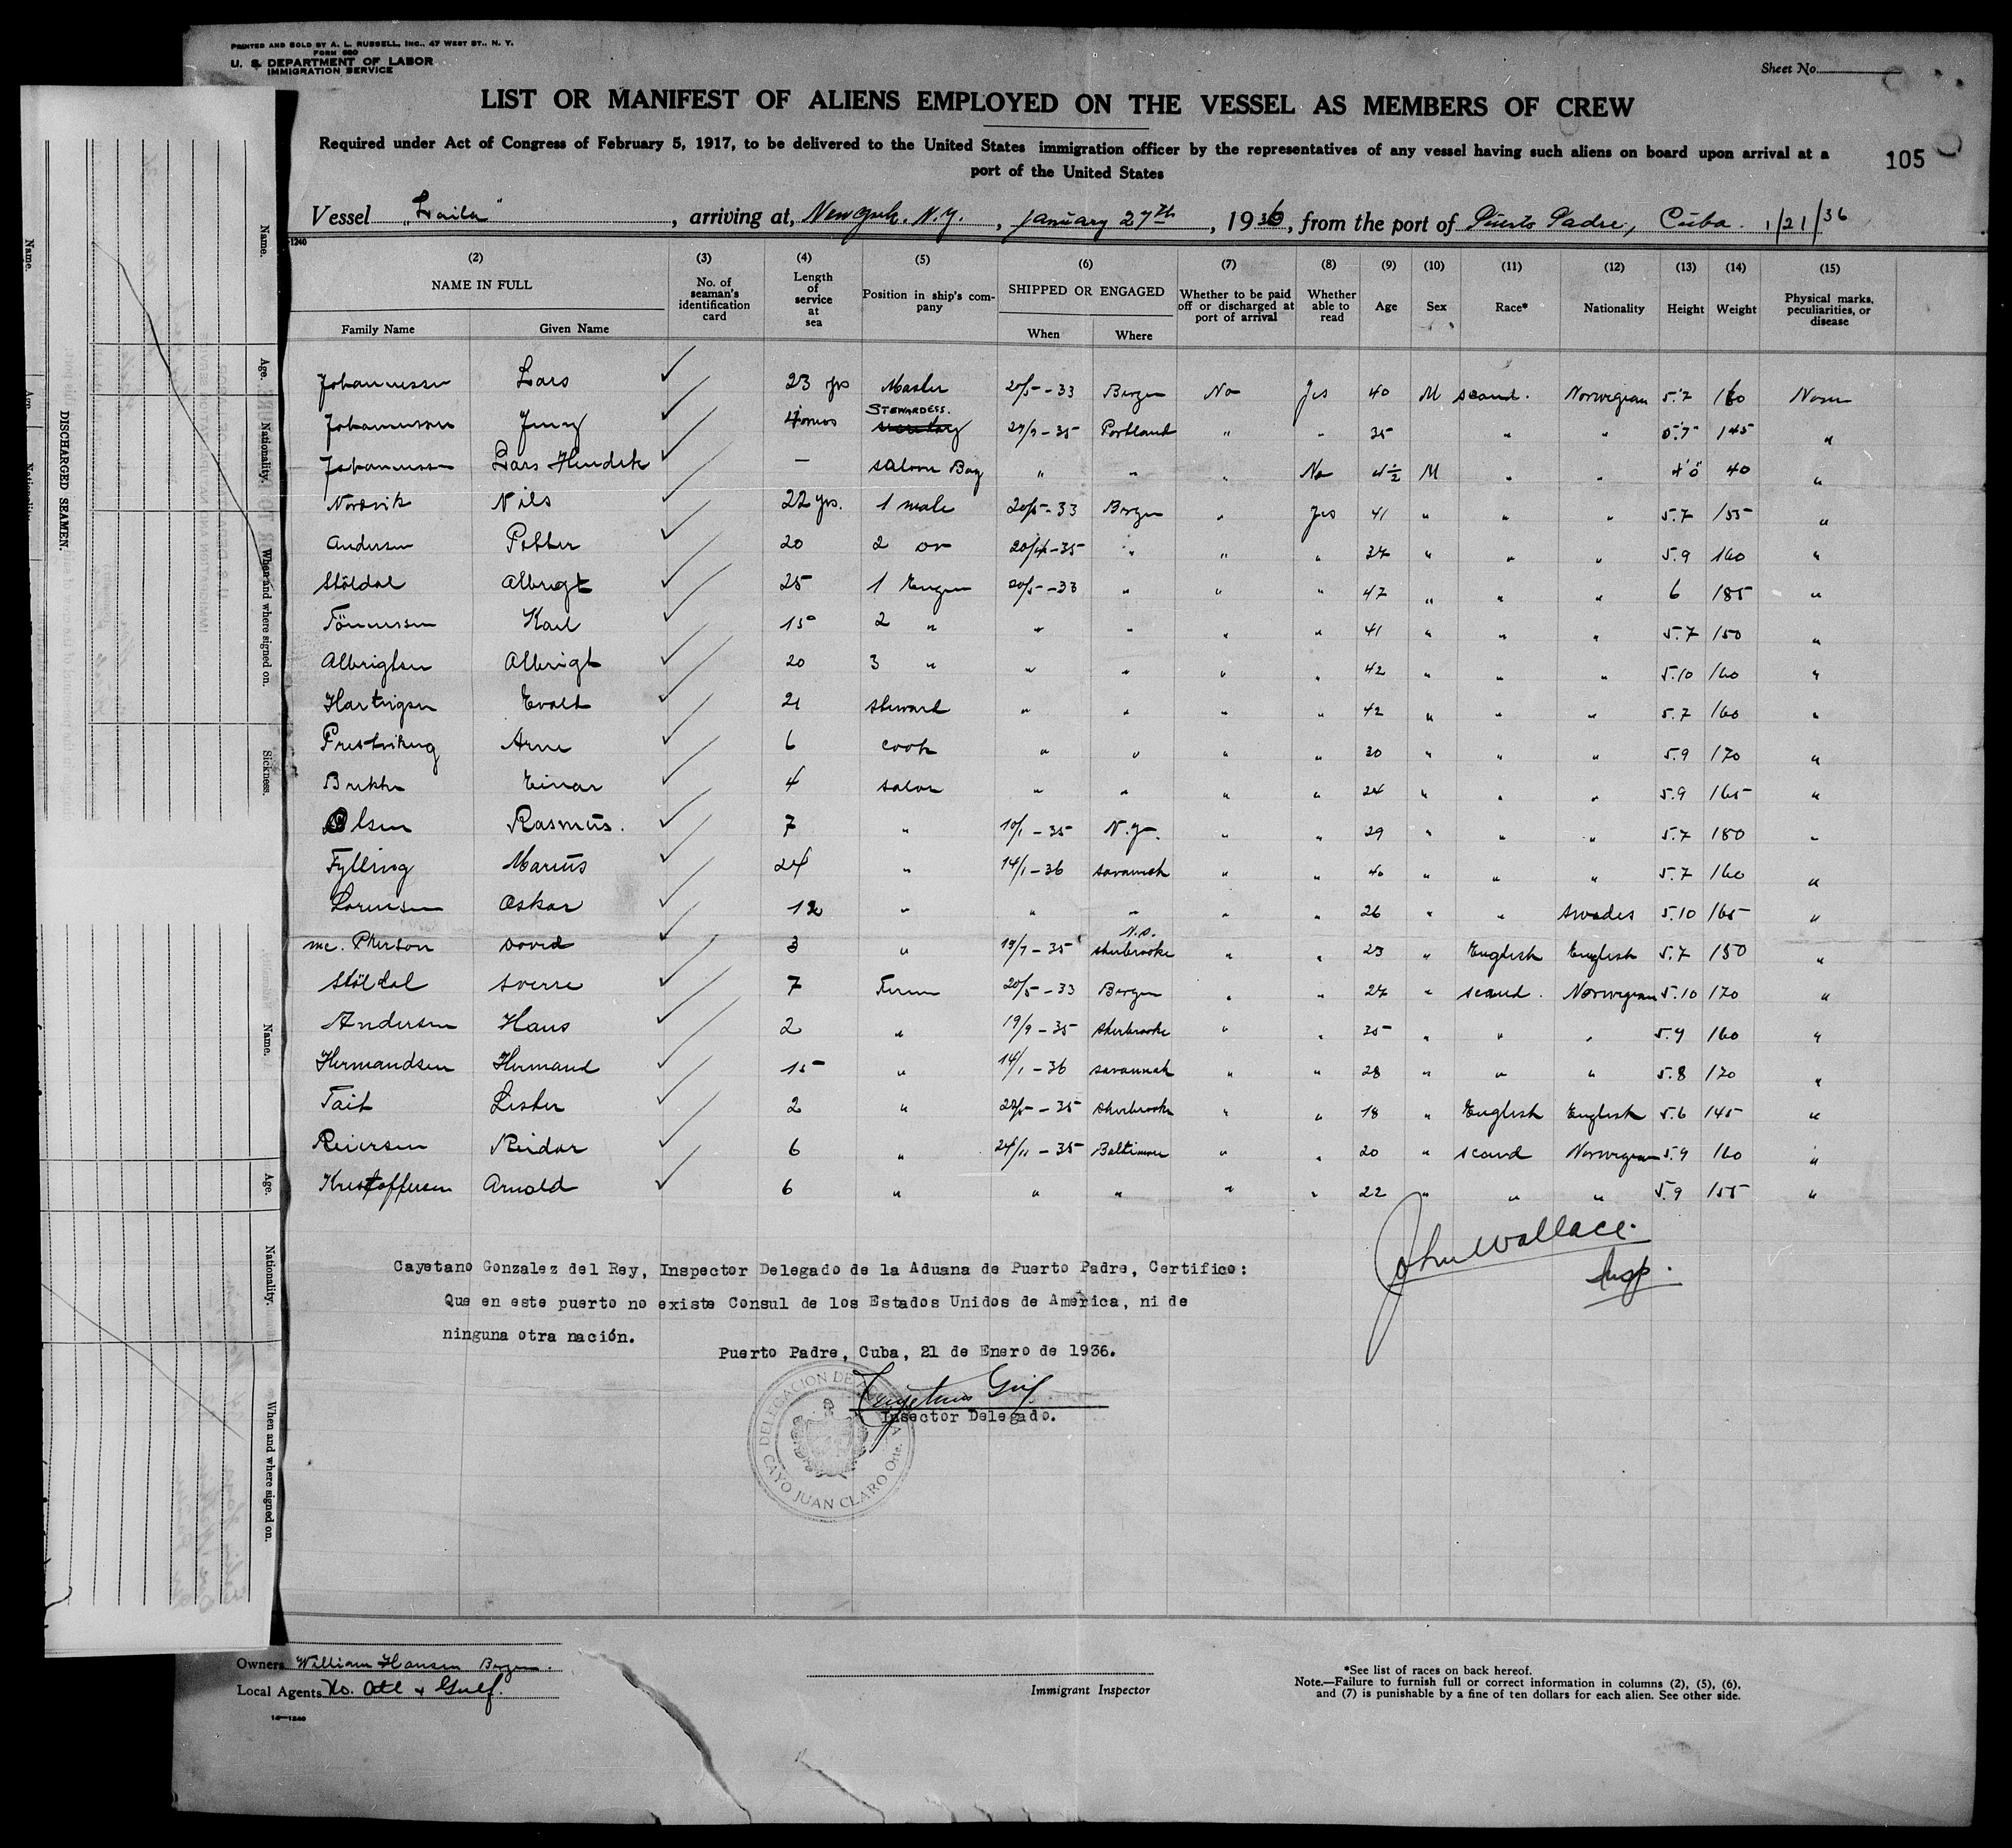 PRINTED AND SOLD BY A. L. RUSSELL, INC., 47 WEST ST., N. Y.
FORM 680
U. S. DEPARTMENT OF LABOR
IMMIGRATION SERVICE
Sheet No.
LIST OR MANIFEST OF ALIENS EMPLOYED ON THE VESSEL AS MEMBERS OF CREW
Required under Act of Congress of February 5, 1917, to be delivered to the United States immigration officer by the representatives of any vessel having such aliens on board upon arrival at a
port of the United States
105
Vessel "Laila", arriving at, New York. N.Y., January 27th, 1936, from the port of Puerto Padre, Cuba. 1/21/36
1240
(2) (3) (4) (5) (6) (7) (8) (9) (10) (11) (12) (13) (14) (15)
NAME IN FULL No. of seaman's identification card Length of service at sea Position in ship's company SHIPPED OR ENGAGED Whether to be paid off or discharged at port of arrival Whether able to read Age Sex Race* Nationality Height Weight Physical marks, peculiarities, or disease
Family Name Given Name When Where
Johannessen Lars ✓ 23 yrs Master 20/5-33 Bergen No Yes 40 M scand. Norwegian 5.7 160 None
Johannessen Jenny ✓ 4 mos STEWARDESS. 27/9-35 Portland " " 35 " " 5'7" 145 "
Johannessen Lars Hendrik ✓ — saloon Boy " " " No 4½ M " " 4'0" 40 "
Nordvik Nils ✓ 22 yrs. 1 mate 20/5-33 Bergen " Yes 41 " " " 5.7 155 "
Andersen Petter ✓ 20 2 " 20/4-35 " " " 37 " " " 5.9 160 "
Stöldal Albregt ✓ 25 1 Engen 20/5-33 " " " 47 " " " 6 185 "
Tönnessen Karl ✓ 15 2 " " " " " 41 " " " 5.7 150 "
Albrigtsen Albrigt ✓ 20 3 " " " " " 42 " " " 5.10 160 "
Hartvigsen Evald ✓ 21 steward " " " " 42 " " " 5.7 160 "
Arne ✓ 6 cook " " " " 30 " " " 5.9 170 "
Einar ✓ 4 salor " " " " 24 " " " 5.9 165 "
Olsen Rasmus. ✓ 7 " 10/1-35 N.Y. " " 29 " " " 5.7 180 "
Fylling Marius ✓ 24 " 14/1-36 savannah " " 40 " " " 5.7 160 "
Lorensen Oskar ✓ 12 " " " " " 26 " " swedes 5.10 165 "
mc. Pherson David ✓ 3 " 19/7-35 sherbrooke N.S. " " 23 " English English 5.7 150 "
Stöldal Sverre ✓ 7 Firem 20/5-33 Bergen " " 27 " scand. Norwegian 5.10 170 "
Andersen Hans ✓ 2 " 19/9-35 sherbrooke " " 25 " " " 5.9 160 "
Hermandsen Hermand ✓ 15 " 14/1-36 savannah " " 28 " " " 5.8 170 "
Tait Lester ✓ 2 " 35 sherbrooke " " 18 " English English 5.6 145 "
Reiersen Reidar ✓ 6 " 24/11-35 Baltimore " " 20 " scand Norwegian 5.9 160 "
Kristoffersen Arnold ✓ 6 " " " " " 22 " " " 5.9 155 "
John Wallace.
Insp.
Cayetano Gonzalez del Rey, Inspector Delegado de la Aduana de Puerto Padre, Certifico:
Que en este puerto no existe Consul de los Estados Unidos de América, ni de
ninguna otra nación.
Puerto Padre, Cuba, 21 de Enero de 1936.
Insector Delegado.
DELEGACION DE
CAYO JUAN CLARO Ote.
Owners William Hansen Bergen.
Local Agents No. Atl & Gulf.
14—1240
Immigrant Inspector
*See list of races on back hereof.
Note.—Failure to furnish full or correct information in columns (2), (5), (6),
and (7) is punishable by a fine of ten dollars for each alien. See other side.
DISCHARGED SEAMEN.
Name. Age. Nationality. When and where signed on. Sickness.
Name. Age. Nationality. When and where signed on.
Name.